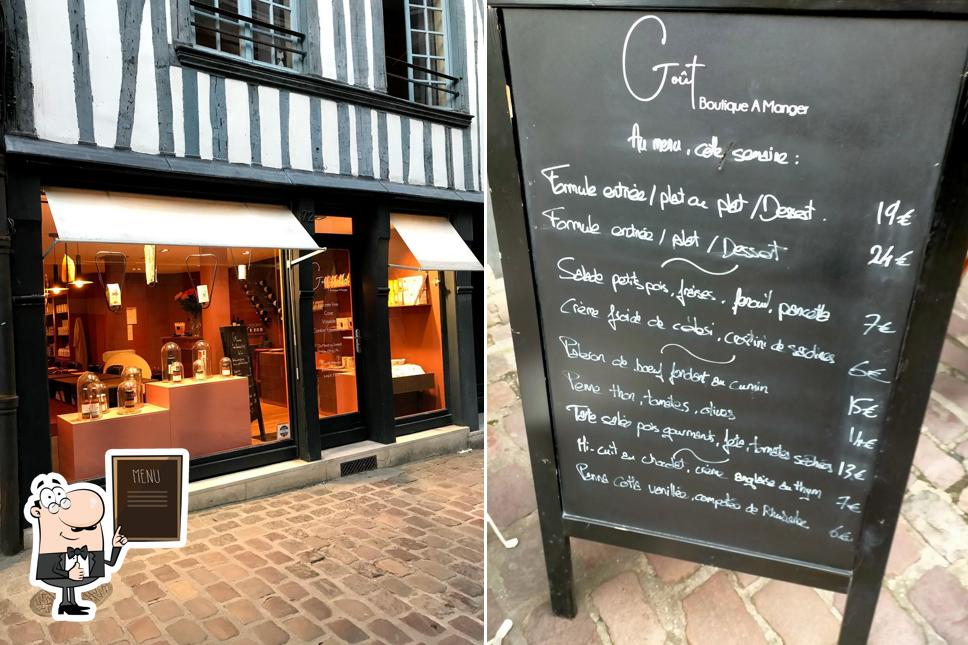 MENU
Goût
Boutique A Manger
Au menu, cette semaine :
Formule entrée / plat ou plat / Dessert. 19€
Formule entrée / plat / Dessert 24€
Salade petits pois, fraises, fenouil, pancetta 7€
Crème froide de , crostini de sardines 6€
Paleron de bœuf fondant au cumin 15€
Penne thon, tomates, olives 14€
Tarte salée pois gourmands, feta, tomates séchées 13€
Mi-cuit au chocolat, crème anglaise au thym 7€
Panna cotta vanillée, compotée de Rhubarbe 6€